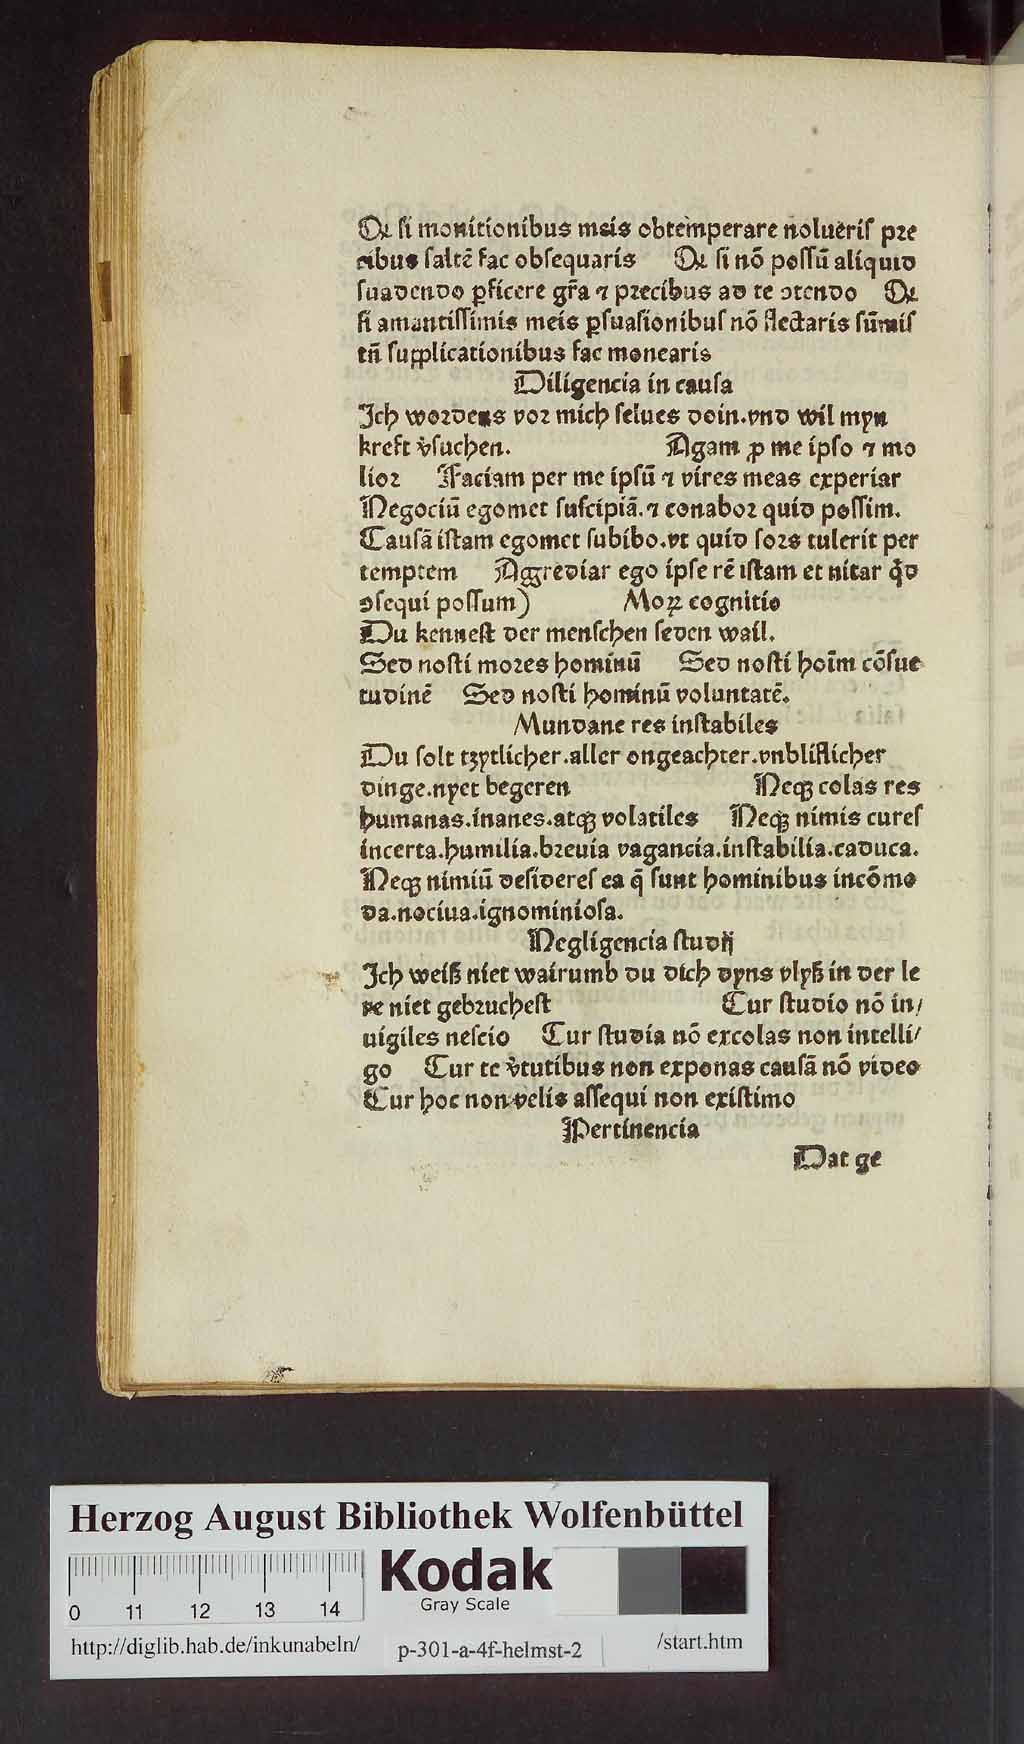 Qd si monitionibus meis obtemperare nolueris pꝛe
cibus saltē fac obsequaris Qd si nō possū aliquid
suadendo ꝑficere gr̄a ⁊ pꝛecibus ad te ↄtendo Qd
si amantissimis meis ꝑsuasionibus nō flectaris sūmis
tn̄ supplicationibus fac monearis
Diligencia in causa
Jch woꝛdens voꝛ mich selues doin.vnd wil myn
kreft v̓suchen. Agam ꝓ me ipso ⁊ mo
lioꝛ Faciam per me ipsū ⁊ vires meas experiar
Negociū egomet suscipiā.⁊ conaboꝛ quid possim.
Causā istam egomet subibo.vt quid soꝛs tulerit per
temptem Aggrediar ego ipse rē istam et nitar qd̓
ↄsequi possum) Moꝝ cognitio
Du kennest der menschen seden wail.
Sed nosti moꝛes hominū Sed nosti hoīm cōsue
tudinē Sed nosti hominū voluntatē.
Mundane res instabiles
Du solt tzytlicher.aller ongeachter.vnbliflicher
dinge.nyet begeren Neqꝫ colas res
humanas.inanes.atqꝫ volatiles Neqꝫ nimis cures
incerta.humilia.bꝛeuia vagancia.instabilia.caduca.
Neqꝫ nimiū desideres ea q̄ sunt hominibus incōmo
da.nociua.ignominiosa.
Negligencia studij
Jch weiß niet wairumb du dich dyns vlyß in der le
re niet gebꝛuchest Cur studio nō in/
uigiles nescio Cur studia nō excolas non intelli/
go Cur te v̓tutibus non exponas causā nō video
Cur hoc non velis assequi non existimo
Pertinencia
Dat ge
Herzog August Bibliothek Wolfenbüttel
Kodak
Gray Scale
0 11 12 13 14
http://diglib.hab.de/inkunabeln/ p-301-a-4f-helmst-2 /start.htm